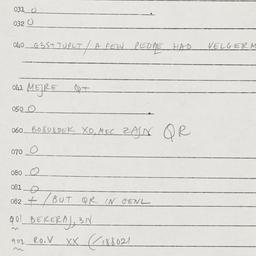 031 0
032 0
040 G3S+JUPLT / A FEW PEOPLE HAD VELGERM
041 MEJRE Q+
050 0
060 BOBUBDER XO, MEC ZAJN QR
070 0
080 0
081 0
082 + / BUT QR IN GENL
901 BEKERAJ, 3N
902 RO.V XX (/188021